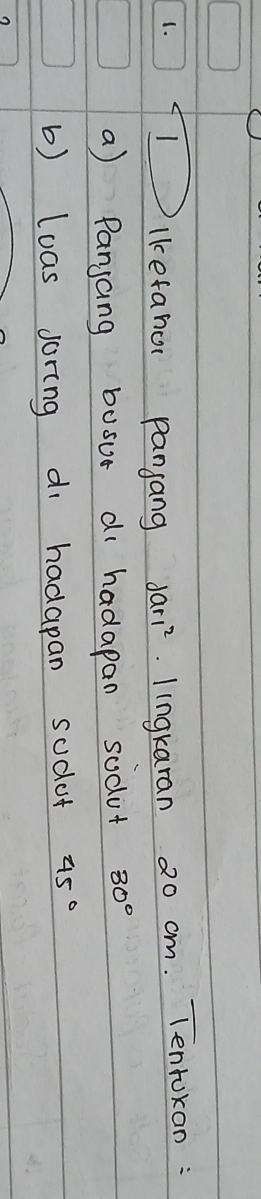 1. Diketahui panjang jari². lingkaran 20 cm. Tentukan :
a) Panjang busur di hadapan sudut 30°
b) luas juring di hadapan sudut 45°